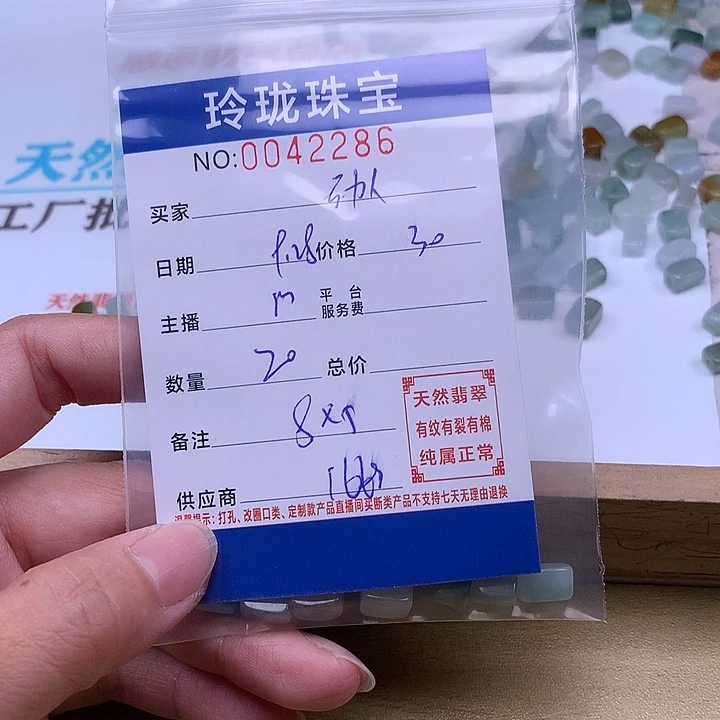 玲珑珠宝
NO:0042286
买家
日期 价格 30
主播 m 平台服务费
数量 20 总价
备注
供应商
天然翡翠
有纹有裂有棉
纯属正常
温馨提示：打孔、改圈口类、定制款产品直播间买断类产品不支持七天无理由退换
天然
工厂批
天然翡